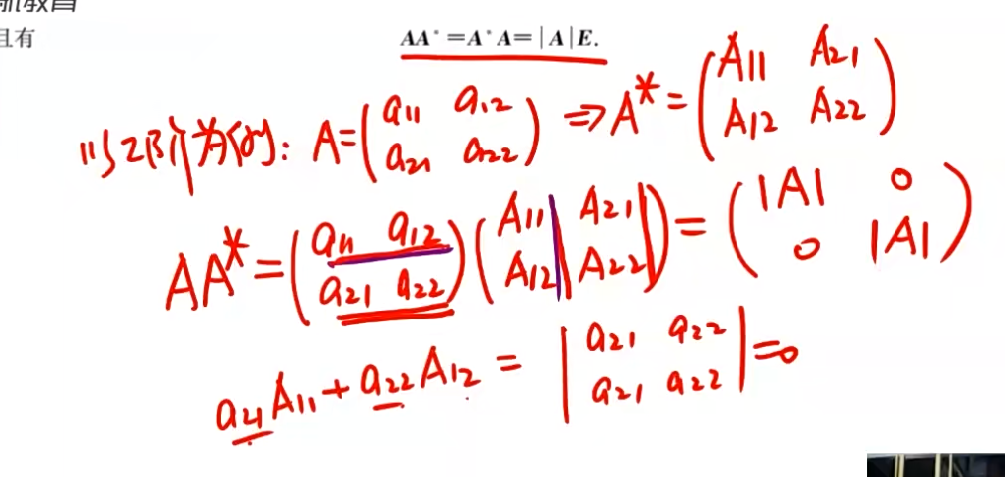 且有
AA* = A*A = |A|E.
以2阶为例: A = (a11 a12 / a21 a22) ⇒ A* = (A11 A21 / A12 A22)
AA* = (a11 a12 / a21 a22)(A11 A21 / A12 A22) = (|A| 0 / 0 |A|)
a21A11 + a22A12 = |a21 a22 / a21 a22| = 0